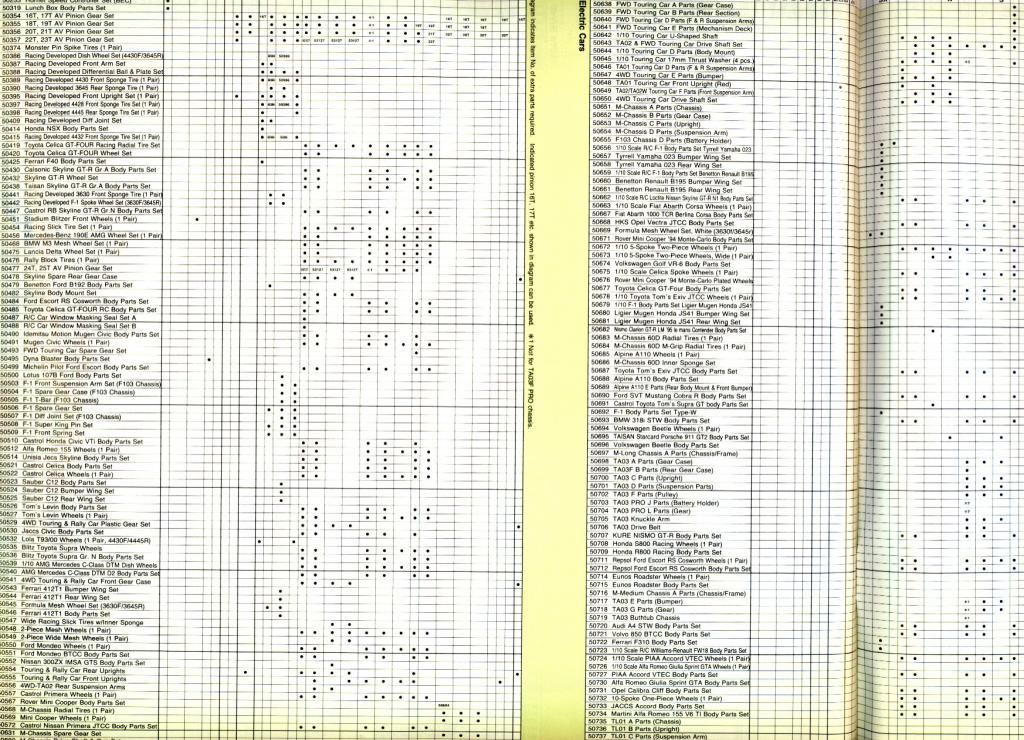 50319 Lunch Box Body Parts Set
50354 16T, 17T AV Pinion Gear Set
50355 18T, 19T AV Pinion Gear Set
50356 20T, 21T AV Pinion Gear Set
50357 22T, 23T AV Pinion Gear Set
50374 Monster Pin Spike Tires (1 Pair)
50386 Racing Developed Dish Wheel Set (4430F/3645R)
50387 Racing Developed Front Arm Set
50388 Racing Developed Differential Ball & Plate Set
50389 Racing Developed 4430 Front Sponge Tire (1 Pair)
50390 Racing Developed 3645 Rear Sponge Tire (1 Pair)
50395 Racing Developed Front Upright Set (1 Pair)
50397 Racing Developed 4428 Front Sponge Tire (1 Pair)
50398 Racing Developed 4445 Rear Sponge Tire (1 Pair)
50409 Racing Developed Diff Joint Set
50414 Honda NSX Body Parts Set
50415 Racing Developed 4432 Front Sponge Tire Set (1 Pair)
50419 Toyota Celica GT-FOUR Racing Radial Tire Set
50420 Toyota Celica GT-FOUR Wheel Set
50425 Ferrari F40 Body Parts Set
50430 Calsonic Skyline GT-R Gr.A Body Parts Set
50432 Skyline GT-R Wheel Set
50438 Taisan Skyline GT-R Gr.A Body Parts Set
50441 Racing Developed 3630 Front Sponge Tire (1 Pair)
50442 Racing Developed F-1 Spoke Wheel Set (3630F/3645R)
50447 Castrol RB Skyline GT-R Gr.N Body Parts Set
50451 Stadium Blitzer Front Wheels (1 Pair)
50454 Racing Slick Tire Set (1 Pair)
50456 Mercedes-Benz 190E AMG Wheel Set (1 Pair)
50468 BMW M3 Mesh Wheel Set (1 Pair)
50475 Lancia Delta Wheel Set (1 Pair)
50476 Rally Block Tires (1 Pair)
50477 24T, 25T AV Pinion Gear Set
50478 Skyline Spare Rear Gear Case
50479 Benetton Ford B192 Body Parts Set
50482 Skyline Body Mount Set
50484 Ford Escort RS Cosworth Body Parts Set
50485 Toyota Celica GT-FOUR RC Body Parts Set
50487 R/C Car Window Masking Seal Set A
50488 R/C Car Window Masking Seal Set B
50490 Idemitsu Motion Mugen Civic Body Parts Set
50491 Mugen Civic Wheels (1 Pair)
50493 FWD Touring Car Spare Gear Set
50495 Dyna Blaster Body Parts Set
50499 Michelin Pilot Ford Escort Body Parts Set
50500 Lotus 107B Ford Body Parts Set
50503 F-1 Front Suspension Arm Set (F103 Chassis)
50504 F-1 Spare Gear Case (F103 Chassis)
50505 F-1 T-Bar (F103 Chassis)
50506 F-1 Spare Gear Set
50507 F-1 Diff Joint Set (F103 Chassis)
50508 F-1 Super King Pin Set
50509 F-1 Front Spring Set
50510 Castrol Honda Civic VTi Body Parts Set
50512 Alfa Romeo 155 Wheels (1 Pair)
50514 Unisia Jecs Skyline Body Parts Set
50521 Castrol Celica Body Parts Set
50522 Castrol Celica Wheels (1 Pair)
50523 Sauber C12 Body Parts Set
50524 Sauber C12 Bumper Wing Set
50525 Sauber C12 Rear Wing Set
50526 Tom's Levin Body Parts Set
50527 Tom's Levin Wheels (1 Pair)
50529 4WD Touring & Rally Car Plastic Gear Set
50530 Jaccs Civic Body Parts Set
50532 Lola T93/00 Wheels (1 Pair, 4430F/4445R)
50535 Blitz Toyota Supra Wheels
50536 Blitz Toyota Supra Gr. N Body Parts Set
50539 1/10 AMG Mercedes C-Class DTM Dish Wheels
50540 AMG Mercedes C-Class DTM D2 Body Parts Set
50541 4WD Touring & Rally Car Front Gear Case
50543 Ferrari 412T1 Bumper Wing Set
50544 Ferrari 412T1 Rear Wing Set
50545 Formula Mesh Wheel Set (3630F/3645R)
50546 Ferrari 412T1 Body Parts Set
50547 Wide Racing Slick Tires w/Inner Sponge
50548 2-Piece Mesh Wheels (1 Pair)
50549 2-Piece Wide Mesh Wheels (1 Pair)
50550 Ford Mondeo Wheels (1 Pair)
50551 Ford Mondeo BTCC Body Parts Set
50552 Nissan 300ZX IMSA GTS Body Parts Set
50554 Touring & Rally Car Rear Uprights
50555 Touring & Rally Car Front Uprights
50556 4WD-TA02 Rear Suspension Arms
50557 Castrol Primera Wheels (1 Pair)
50567 Rover Mini Cooper Body Parts Set
50568 M-Chassis Radial Tires (1 Pair)
50569 Mini Cooper Wheels (1 Pair)
50572 Castrol Nissan Primera JTCC Body Parts Set
50631 M-Chassis Spare Gear Set
agram indicates Item No. of extra parts required. Indicated pinion 16T, 17T etc. shown in diagram can be used. ※1 Not for TA03F PRO chassis.
Electric Cars
50638 FWD Touring Car A Parts (Gear Case)
50639 FWD Touring Car B Parts (Rear Section)
50640 FWD Touring Car D Parts (F & R Suspension Arms)
50641 FWD Touring Car E Parts (Mechanism Deck)
50642 1/10 Touring Car U-Shaped Shaft
50643 TA02 & FWD Touring Car Drive Shaft Set
50644 1/10 Touring Car D Parts (Body Mount)
50645 1/10 Touring Car 17mm Thrust Washer (4 pcs.)
50646 TA01 Touring Car D Parts (F & R Suspension Arms)
50647 4WD Touring Car E Parts (Bumper)
50648 TA01 Touring Car Front Upright (Red)
50649 TA02/TA02W Touring Car F Parts (Front Suspension Arm)
50650 4WD Touring Car Drive Shaft Set
50651 M-Chassis A Parts (Chassis)
50652 M-Chassis B Parts (Gear Case)
50653 M-Chassis C Parts (Upright)
50654 M-Chassis D Parts (Suspension Arm)
50655 F103 Chassis D Parts (Battery Holder)
50656 1/10 Scale R/C F-1 Body Parts Set Tyrrell Yamaha 023
50657 Tyrrell Yamaha 023 Bumper Wing Set
50658 Tyrrell Yamaha 023 Rear Wing Set
50659 1/10 Scale R/C F-1 Body Parts Set Benetton Renault B195
50660 Benetton Renault B195 Bumper Wing Set
50661 Benetton Renault B195 Rear Wing Set
50662 1/10 Scale R/C Loctite Nissan Skyline GT-R N1 Body Parts Set
50663 1/10 Scale Fiat Abarth Corsa Wheels (1 Pair)
50667 Fiat Abarth 1000 TCR Berlina Corsa Body Parts Set
50668 HKS Opel Vectra JTCC Body Parts Set
50669 Formula Mesh Wheel Set, White (3630f/3645r)
50671 Rover Mini Cooper '94 Monte-Carlo Body Parts Set
50672 1/10 5-Spoke Two-Piece Wheels (1 Pair)
50673 1/10 5-Spoke Two-Piece Wheels, Wide (1 Pair)
50674 Volkswagen Golf VR-6 Body Parts Set
50675 1/10 Scale Celica Spoke Wheels (1 Pair)
50676 Rover Mini Cooper '94 Monte-Carlo Plated Wheels
50677 Toyota Celica GT-Four Body Parts Set
50678 1/10 Toyota Tom's Exiv JTCC Wheels (1 Pair)
50679 1/10 F-1 Body Parts Set Ligier Mugen Honda JS41
50680 Ligier Mugen Honda JS41 Bumper Wing Set
50681 Ligier Mugen Honda JS41 Rear Wing Set
50682 Nismo Clarion GT-R LM '95 le mans Contender Body Parts Set
50683 M-Chassis 60D Radial Tires (1 Pair)
50684 M-Chassis 60D M-Grip Radial Tires (1 Pair)
50685 Alpine A110 Wheels (1 Pair)
50686 M-Chassis 60D Inner Sponge Set
50687 Toyota Tom's Exiv JTCC Body Parts Set
50688 Alpine A110 Body Parts Set
50689 Alpine A110 E Parts (Rear Body Mount & Front Bumper)
50690 Ford SVT Mustang Cobra R Body Parts Set
50691 Castrol Toyota Tom's Supra GT body Parts Set
50692 F-1 Body Parts Set Type-W
50693 BMW 318i STW Body Parts Set
50694 Volkswagen Beetle Wheels (1 Pair)
50695 TAISAN Starcard Porsche 911 GT2 Body Parts Set
50696 Volkswagen Beetle Body Parts Set
50697 M-Long Chassis A Parts (Chassis/Frame)
50698 TA03 A Parts (Gear Case)
50699 TA03F B Parts (Rear Gear Case)
50700 TA03 C Parts (Upright)
50701 TA03 D Parts (Suspension Parts)
50702 TA03 F Parts (Pulley)
50703 TA03 PRO J Parts (Battery Holder)
50704 TA03 PRO L Parts (Gear)
50705 TA03 Knuckle Arm
50706 TA03 Drive Belt
50707 KURE NISMO GT-R Body Parts Set
50708 Honda S800 Racing Wheels (1 Pair)
50709 Honda R800 Racing Body Parts Set
50711 Repsol Ford Escort RS Cosworth Wheels (1 Pair)
50712 Repsol Ford Escort RS Cosworth Body Parts Set
50714 Eunos Roadster Wheels (1 Pair)
50715 Eunos Roadster Body Parts Set
50716 M-Medium Chassis A Parts (Chassis/Frame)
50717 TA03 E Parts (Bumper)
50718 TA03 G Parts (Gear)
50719 TA03 Buthtub Chassis
50720 Audi A4 STW Body Parts Set
50721 Volvo 850 BTCC Body Parts Set
50722 Ferrari F310 Body Parts Set
50723 1/10 Scale R/C Williams-Renault FW18 Body Parts Set
50724 1/10 Scale PIAA Accord VTEC Wheels (1 Pair)
50726 1/10 Scale Alfa Romeo Giulia Sprint GTA Wheels (1 Pair)
50727 PIAA Accord VTEC Body Parts Set
50730 Alfa Romeo Giulia Sprint GTA Body Parts Set
50731 Opel Calibra Cliff Body Parts Set
50732 10-Spoke One-Piece Wheels (1 Pair)
50733 JACCS Accord Body Parts Set
50734 Martini Alfa Romeo 155 V6 TI Body Parts Set
50735 TL01 A Parts (Chassis)
50736 TL01 B Parts (Upright)
50737 TL01 C Parts (Suspension Arm)